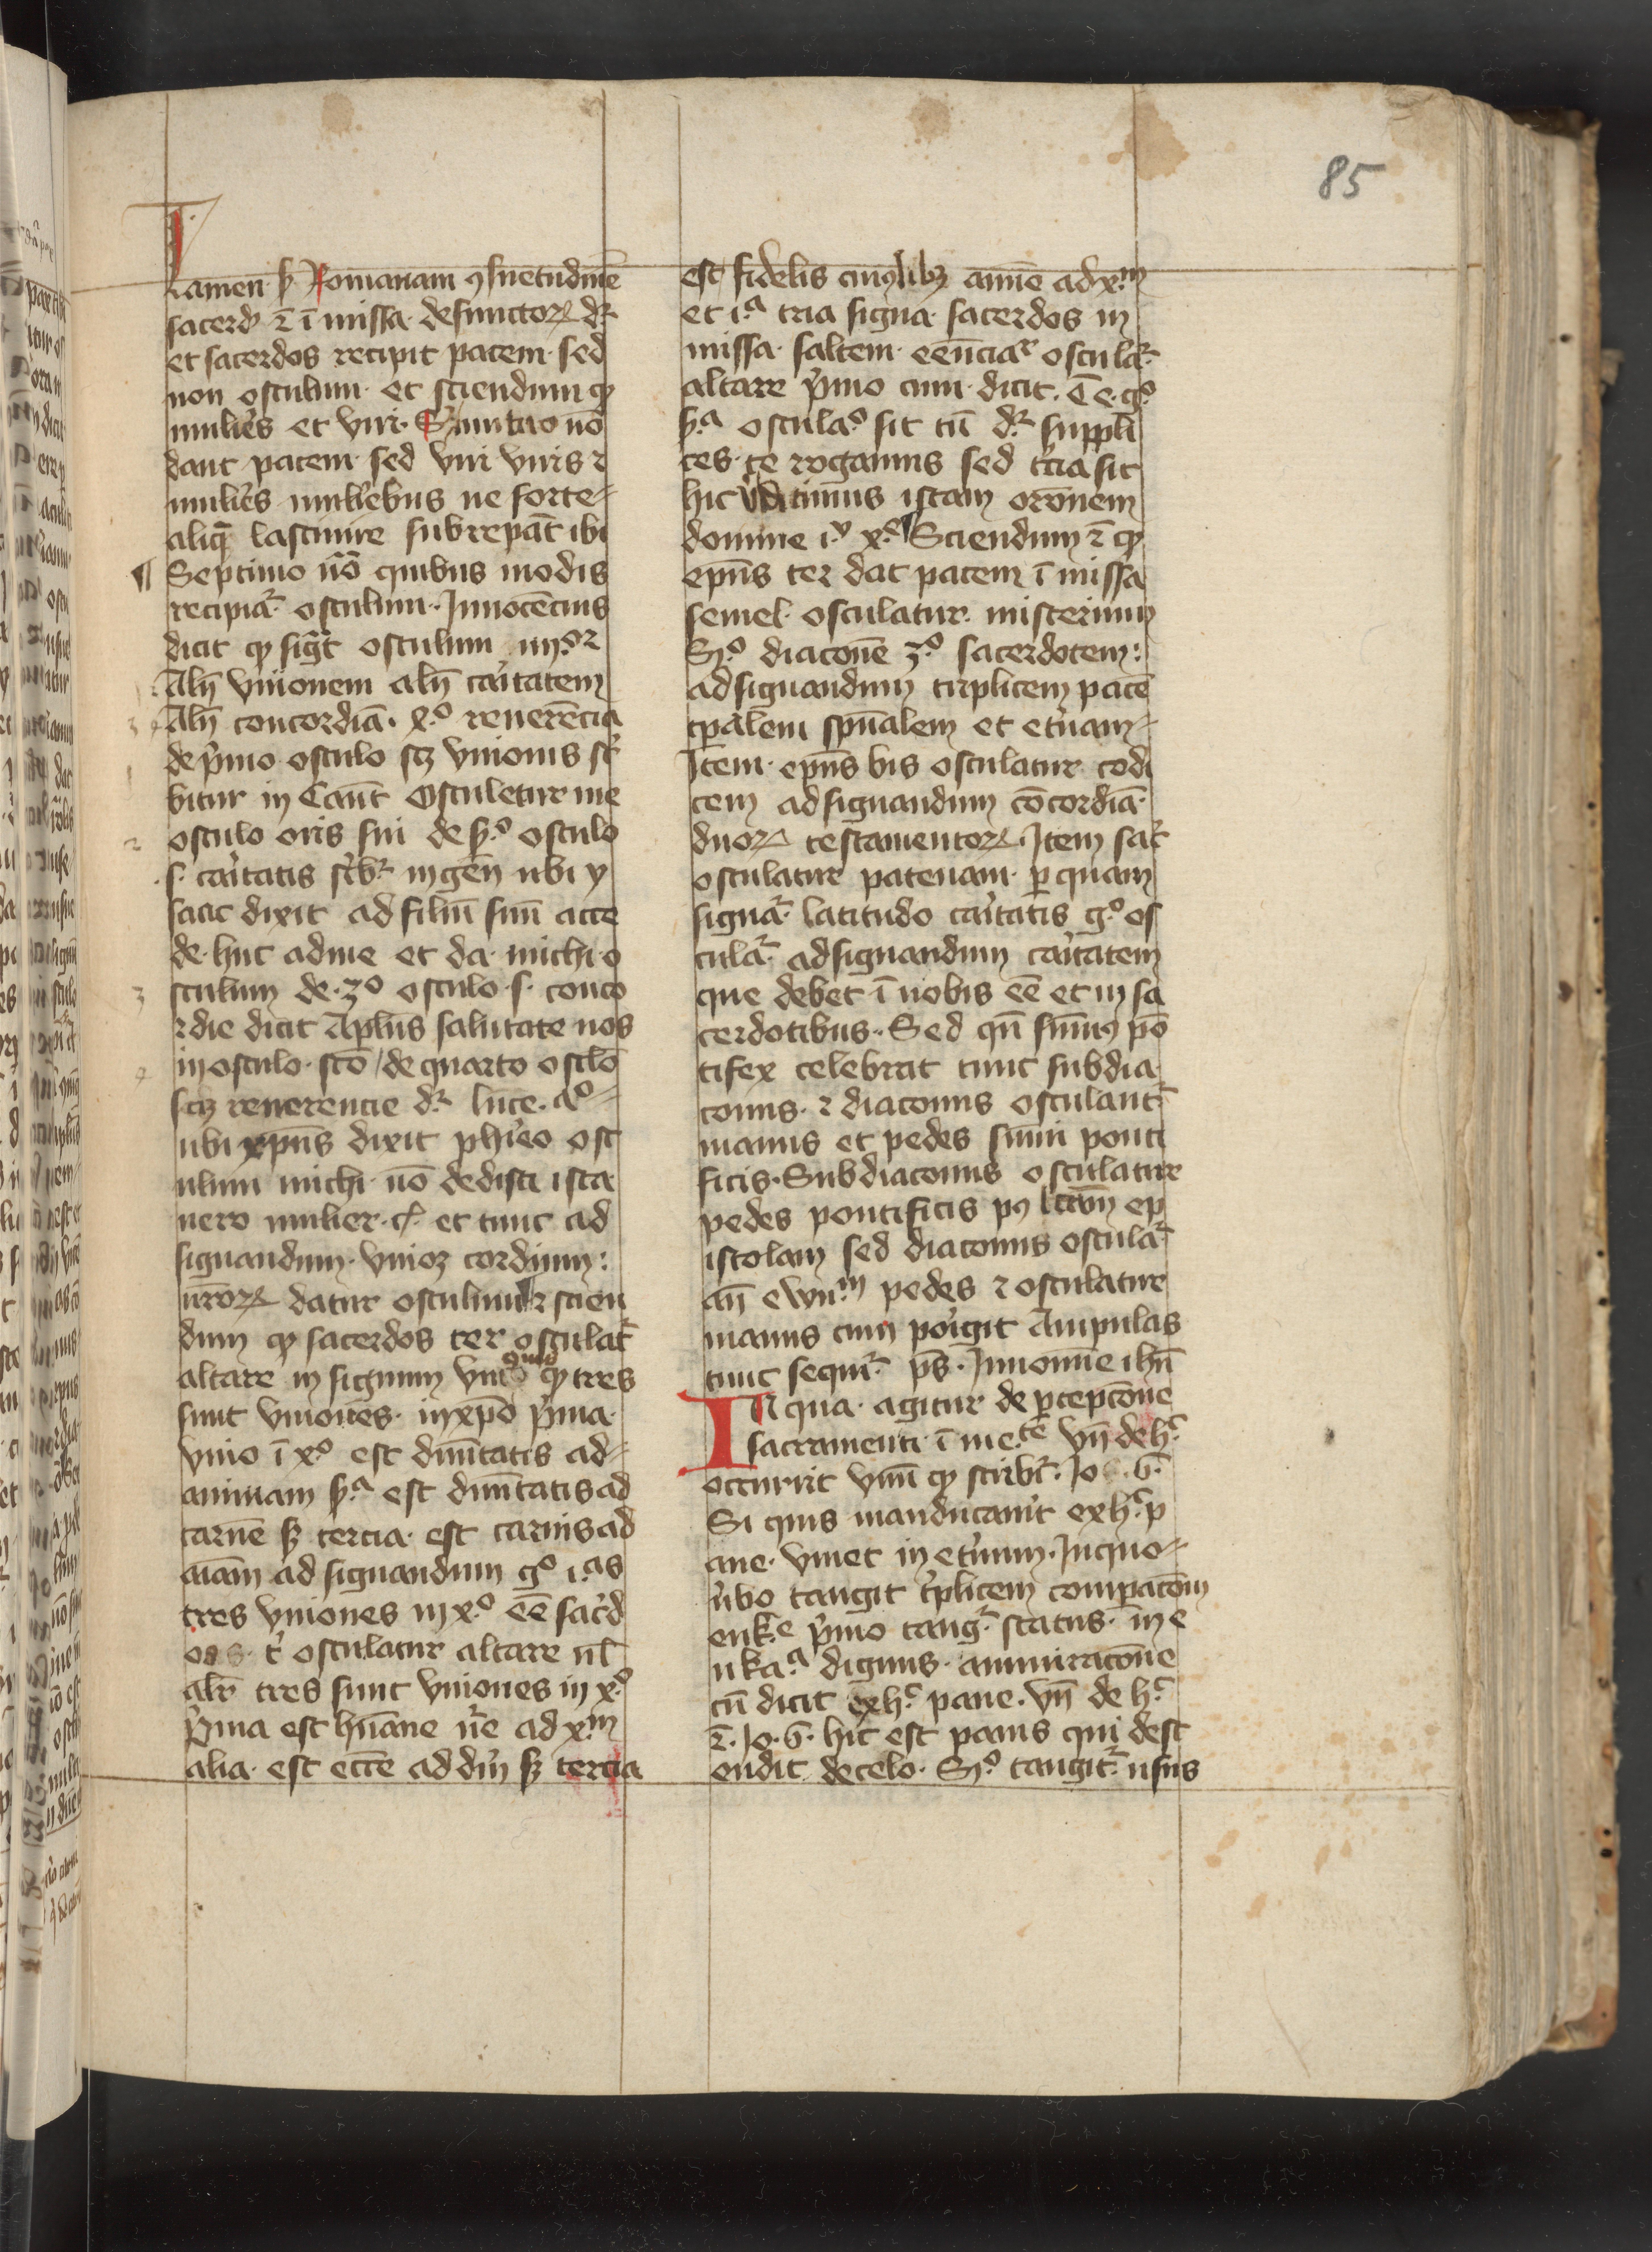 85
Tamen ẜ Romanam ꝯsuetudinē
sacerd̾ ē ī missa defunctoꝝ dr̄
et sacerdos recipit pacem sed
non osculum et sciendum ꝙ
mulieres et viri mutuo nō
dant pacem sed viri viris ⁊
mulieres mulieribus ne forte
aliq̄ lasciuie subrepāt ibi
¶ Septimo nō quibus modis
recipiat̾ osculum Innocēcius
dicit ꝙ sigt̄ osculum iiij.ᵒʳ
Aliꝗ̄ vnionem aliꝗ̄ caritatem
Aliꝗ̄ concordiā. xᵒ reuerēcia
de pͥmo osculo scꝫ vnionis scͥ
bitur in Cant̄ Osculetur me
osculo oris sui de ẜᵒ osculo
.s. caritatis scͥbr̄ in gen̄ ubi y
saac dixit ad filiū suū acce
de huc ad me et da michi o
sculum de 3ᵒ osculo .s. conco
rdie dicit Apl̄us salutate uos
in osculo scō / de quarto osclō
scꝫ reuerencie dr̄ luce.
ubi xp̄us dixit phiseo osc
ulum michi nō dedisti ista
uero mulier et tunc ad
signandum vnioꝫ cordium:
nr̄oꝝ datur osculum ⁊ scien
dum ꝙ sacerdos ter osculat̾
altare in signum ꝙ tres
sunt vniones in xp̄o pͥma
vnio ī xᵒ est diuītatis ad
animam ẜᵃ est diuītatis ad
carnē ẜꝫ tercia est carnis ad
aīam ad signandum gᵒ i.ᵃˢ
tres vniones in xᵒ eē sacͥd
os tͥ osculatur altare ul̄
alr̄ tres sunt vniones in xᵒ
pͥma est hūane nr̄e ad xᵐ
alia est eccē ad dm̄ ẜꝫ tercia
est fidelis cuiꝰlibꝫ anīme ad xᵐ
et i.ᵃ tria signa sacerdos in
missa saltem osculat̾
altare pͥmo cum dicit. T e. gᵒ
ẜᵃ osculaᵒ sit tū dr̄ suppli
ces te rogamus sed tͥcia sit
hic istam orōnem
domine i.ͮ xᵉ Sciendum ē ꝙ
epūs ter dat pacem ī missa
semel osculatur misterium
Sᵒ diaconē 3ᵒ sacerdotem:
ad signandum triplicem pacē
tp̄alem spūalem et eternam
Item epūs bis osculatur codi
cem ad signandum cōcordiā
duoꝝ testamentoꝝ. Item sac̄
osculatur patenam ꝑ quam
signat̾ latitudo caritatis gᵒ os
culat̾ ad signandum caritatem
que debet ī nobis eē et in sa
cerdotibus. Sed qn̄ sūmꝰ pō
tifex celebrat tunc subdia
conus ⁊ diaconus osculant̾
manus et pedes sūmi ponti
ficis. Subdiaconus osculatur
pedes pontificis pꝰ lcām ep
istolam sed diaconus osculat̾
an̄ ewūᵐ pedes ⁊ osculatur
manus cum porigit Ampulas
tunc sequit̾ ps̄. In nomine ihū
In qua agitur de ꝑcepcōne
sacramenti ī me.ᵗᵉ vn̄ de hᶜ
occurrit vnū ꝙ scribit̾ Jo .6.
Si quis manducauit ex hᶜ p
ane viuet in eternum. In quo
ubo tangit tͥplicem comꝑacōm
euk.ᵉ pͥmo tangit̾ status in e
ukaᵃ dignus ammiracōne
cū dicit ex hᶜ pane. vn̄ de hᶜ
ē. Jo .6. hic est panis qui desc
endit de celo. Sᵒ tangit̾ usus